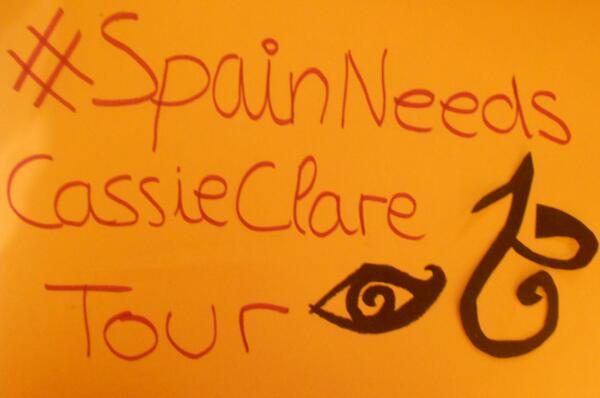 #SpainNeeds
CassieClare
Tour